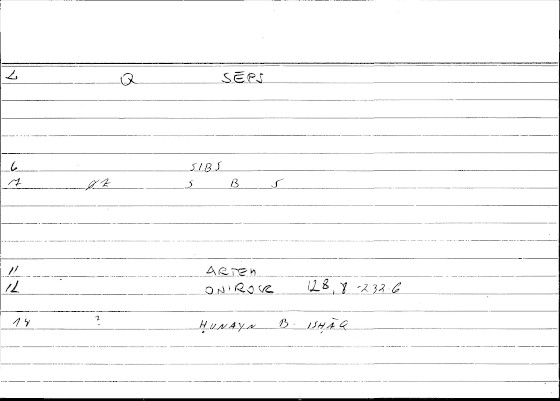 Q SĒPS
6 SIBS
17 S B S
11 ARTEM
12 ONIROCR 128,8-232.6
14 ? ḤUNAYN B. ISḤĀQ